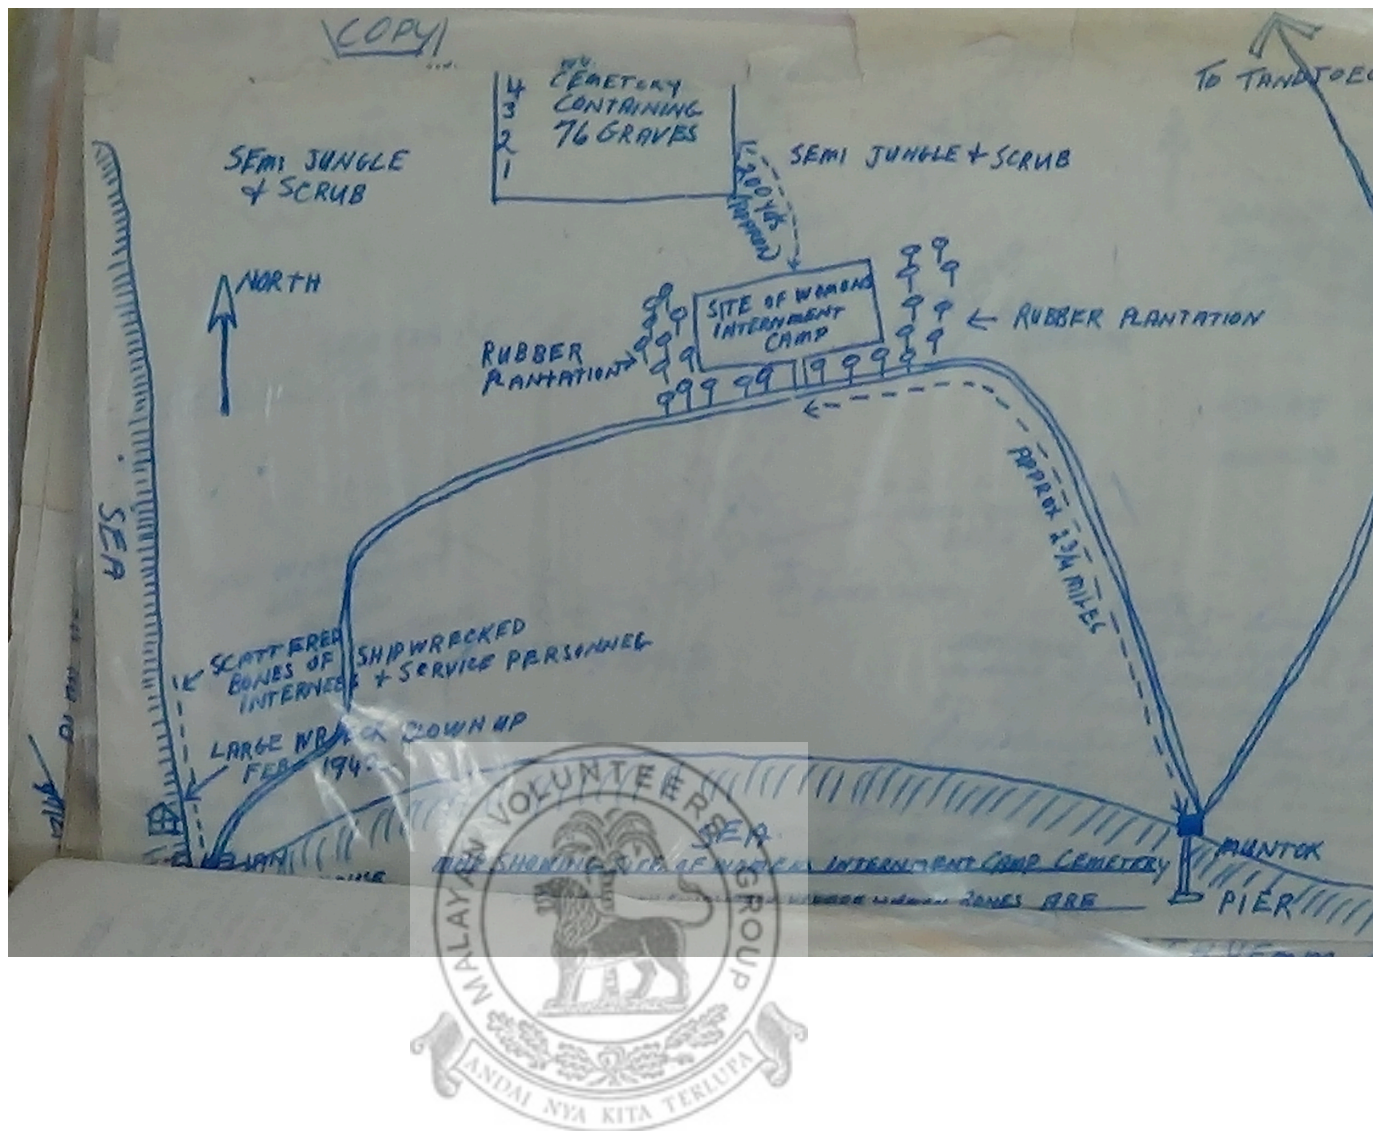 COPY
TO TANDJOE
CEMETERY
CONTAINING
76 GRAVES
4
3
2
1
SEMI JUNGLE
& SCRUB
SEMI JUNGLE & SCRUB
200 YDS
APPROX
NORTH
SITE OF WOMENS
INTERNMENT
CAMP
RUBBER
PLANTATION
RUBBER PLANTATION
APPROX 2 3/4 MILES
SEA
SCATTERED
BONES OF SHIPWRECKED
INTERNEES & SERVICE PERSONNEL
LARGE WRECK BLOWN UP
FEB 194
SEA
MAP SHOWING SITE OF WOMENS INTERNMENT CAMP CEMETERY
BONES ARE
MUNTOK
PIER
MALAYAN VOLUNTEERS GROUP
ANDAI NYA KITA TERLUPA